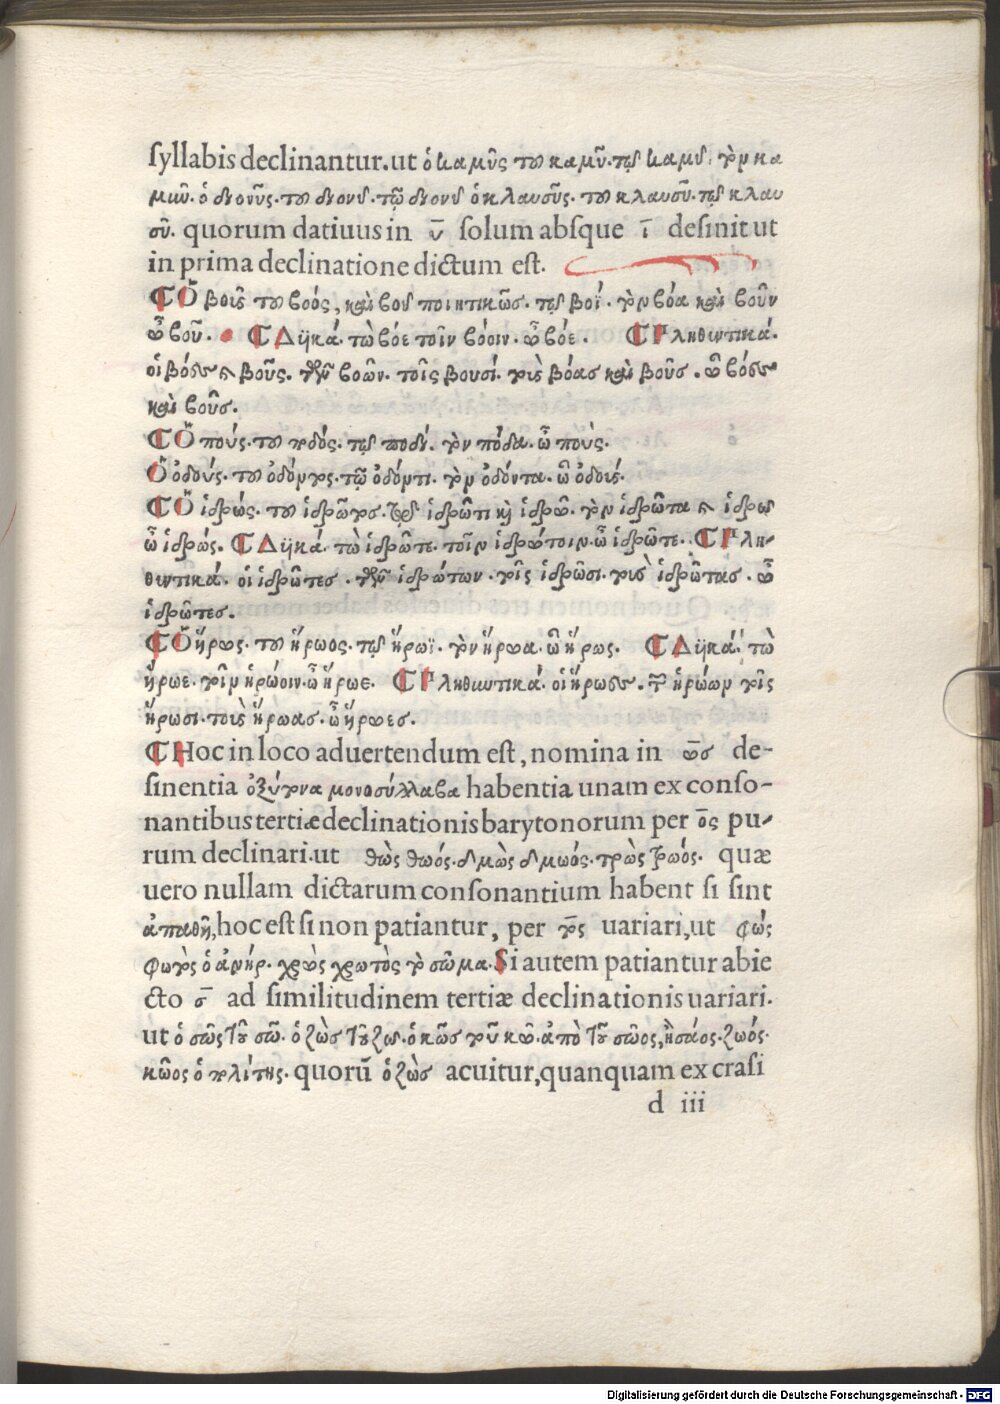 syllabis declinantur. ut ὁ καμῦς τοῦ καμῦ. τῷ καμῦ. τὸν κα
μῦν. ὁ διονῦς. τοῦ διονῦ. τῷ διονῦ ὁ κλαυσῦς. τοῦ κλαυσῦ. τῷ κλαυ
σῦ. quorum datiuus in ῡ solum absque ῑ desinit ut
in prima declinatione dictum est.
Ὁ βοῦς τοῦ βοός, καὶ βοῦ ποιητικῶς. τῷ βοΐ. τὸν βόα καὶ βοῦν
ὦ βοῦ. Δυϊκά. τὼ βόε τοῖν βόοιν. ὦ βόε. Πληθυντικά.
οἱ βόες καὶ βοῦς. τῶν βοῶν. τοῖς βουσί. τοὺς βόας καὶ βοῦς. ὦ βόες
καὶ βοῦς.
Ὁ πούς. τοῦ ποδός. τῷ ποδί. τὸν πόδα. ὦ πούς.
Ὁ ὀδούς. τοῦ ὀδόντος. τῷ ὀδόντι. τὸν ὀδόντα. ὦ ὀδούς.
Ὁ ἱδρώς. τοῦ ἱδρῶτος. τῷ ἱδρῶτι καὶ ἱδρῷ. τὸν ἱδρῶτα καὶ ἱδρῶ
ὦ ἱδρώς. Δυϊκά. τὼ ἱδρῶτε. τοῖν ἱδρώτοιν. ὦ ἱδρῶτε. Πλη-
θυντικά. οἱ ἱδρῶτες. τῶν ἱδρώτων. τοῖς ἱδρῶσι. τοὺς ἱδρῶτας. ὦ
ἱδρῶτες.
Ὁ ἥρως. τοῦ ἥρωος. τῷ ἥρωϊ. τὸν ἥρωα. ὦ ἥρως. Δυϊκά. τὼ
ἥρωε. τοῖν ἡρώοιν. ὦ ἥρωε. Πληθυντικά. οἱ ἥρωες. τῶν ἡρώων τοῖς
ἥρωσι. τοὺς ἥρωας. ὦ ἥρωες.
Hoc in loco aduertendum est, nomina in ως de-
sinentia ὀξύτονα μονοσύλλαβα habentia unam ex conso-
nantibus tertiæ declinationis barytonorum per ος pu-
rum declinari. ut θὼς θωός. δμὼς δμωός. τρὼς τρωός. quæ
uero nullam dictarum consonantium habent si sint
ἀπαθῆ, hoc est si non patiantur, per τος uariari, ut φώς
φωτὸς ὁ ἀνήρ. χρὼς χρωτὸς τὸ σῶμα. Si autem patiantur abie
cto ς ad similitudinem tertiæ declinationis uariari.
ut ὁ σῶς τοῦ σῶ. ὁ ζὼς τοῦ ζω. ὁ κῶς τοῦ κῶ. ἀπὸ τοῦ σῶος, ἢ σάος. ζωός.
κῶος ὁ πολίτης. quorū ὁ ζὼς acuitur, quanquam ex crasi
d iii
Digitalisierung gefördert durch die Deutsche Forschungsgemeinschaft - DFG